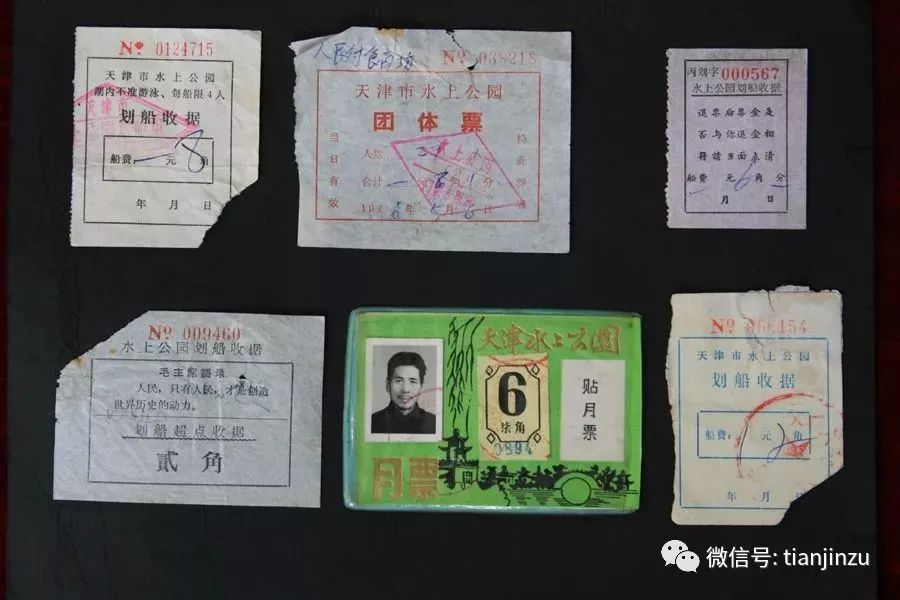 № 0124715
天津市水上公园
湖内不准游泳、每船限4人
划船收据
船费: 一元8角
年 月 日
人民付食商场
№ 038218
天津市水上公园
团体票
当日有效
持此券
人数
合计一元 分
1976年5月6日
丙划字 000567
水上公园划船收据
退票后票金是
否与你退金相
符请当面点清
船费 元6角 分
月 日
№ 009460
水上公园划船收据
毛主席语录
人民,只有人民,才是创造
世界历史的动力。
划船超点收据
贰角
天津水上公园
6
柒角
0894
贴月票
月票
№ 066154
天津市水上公园
划船收据
船费: 1元2角
年 月 日
微信号: tianjinzu